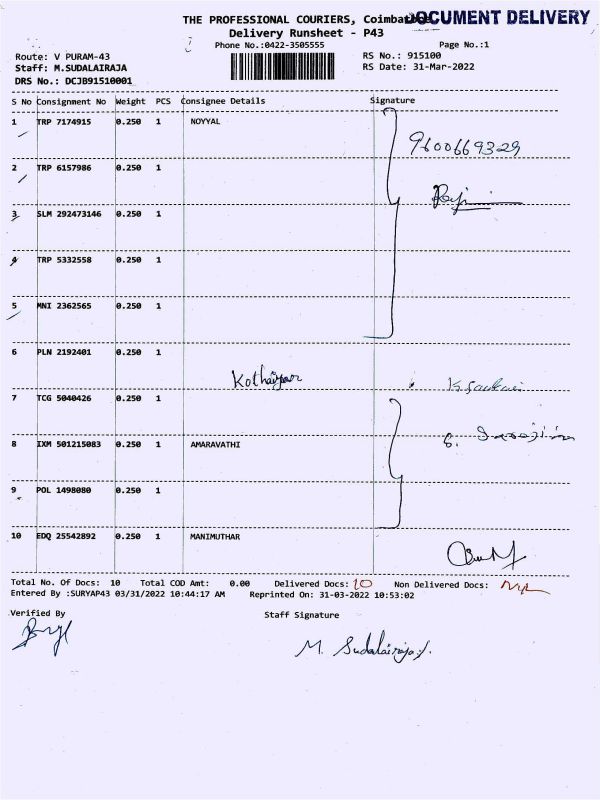 THE PROFESSIONAL COURIERS, Coimbatore
DOCUMENT DELIVERY
Delivery Runsheet - P43
Phone No.:0422-3505555 Page No.:1
Route: V PURAM-43 RS No.: 915100
Staff: M.SUDALAIRAJA RS Date: 31-Mar-2022
DRS No.: DCJB91510001
S No Consignment No Weight PCS Consignee Details Signature
1 TRP 7174915 0.250 1 NOYYAL
9600669329
2 TRP 6157986 0.250 1
3 SLM 292473146 0.250 1
4 TRP 5332558 0.250 1
5 MNI 2362565 0.250 1
6 PLN 2192401 0.250 1
7 TCG 5040426 0.250 1
8 IXM 501215083 0.250 1 AMARAVATHI
9 POL 1498080 0.250 1
10 EDQ 25542892 0.250 1 MANIMUTHAR
Total No. Of Docs: 10 Total COD Amt: 0.00 Delivered Docs: 10 Non Delivered Docs:
Entered By :SURYAP43 03/31/2022 10:44:17 AM Reprinted On: 31-03-2022 10:53:02
Verified By Staff Signature
M. Sudalairaja